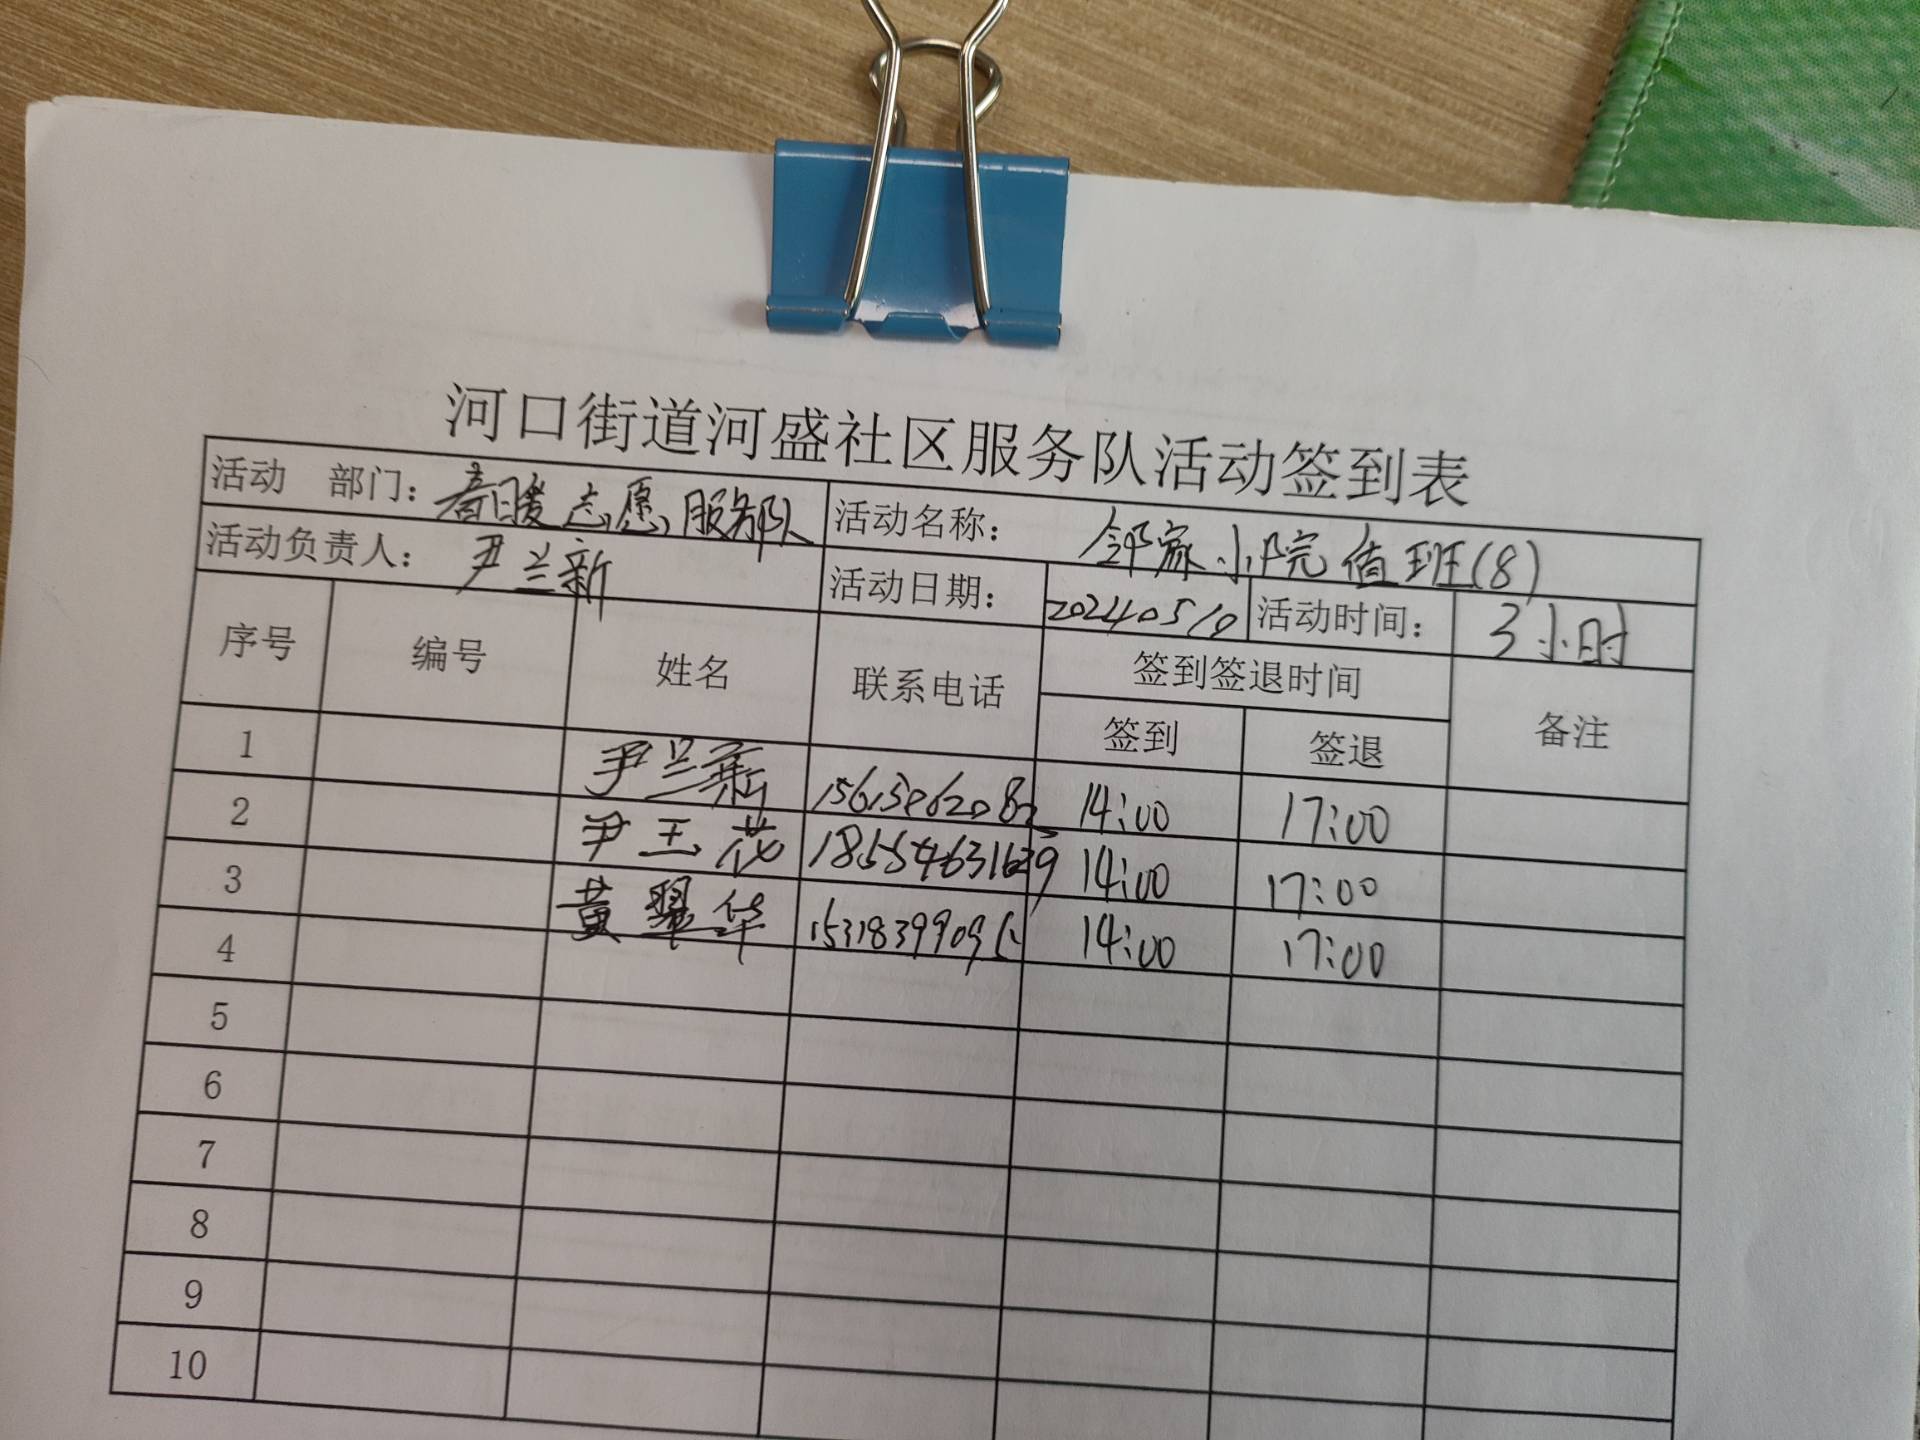 河口街道河盛社区服务队活动签到表
活动 部门：春暖志愿服务队 活动名称：邻家小院值班(8)
活动负责人：尹兰新 活动日期：20240510 活动时间：3小时
序号 编号 姓名 联系电话 签到签退时间 备注
签到 签退
1 尹兰新 15615062082 14:00 17:00
2 尹玉花 18554631639 14:00 17:00
3 黄翠华 14:00 17:00
4
5
6
7
8
9
10